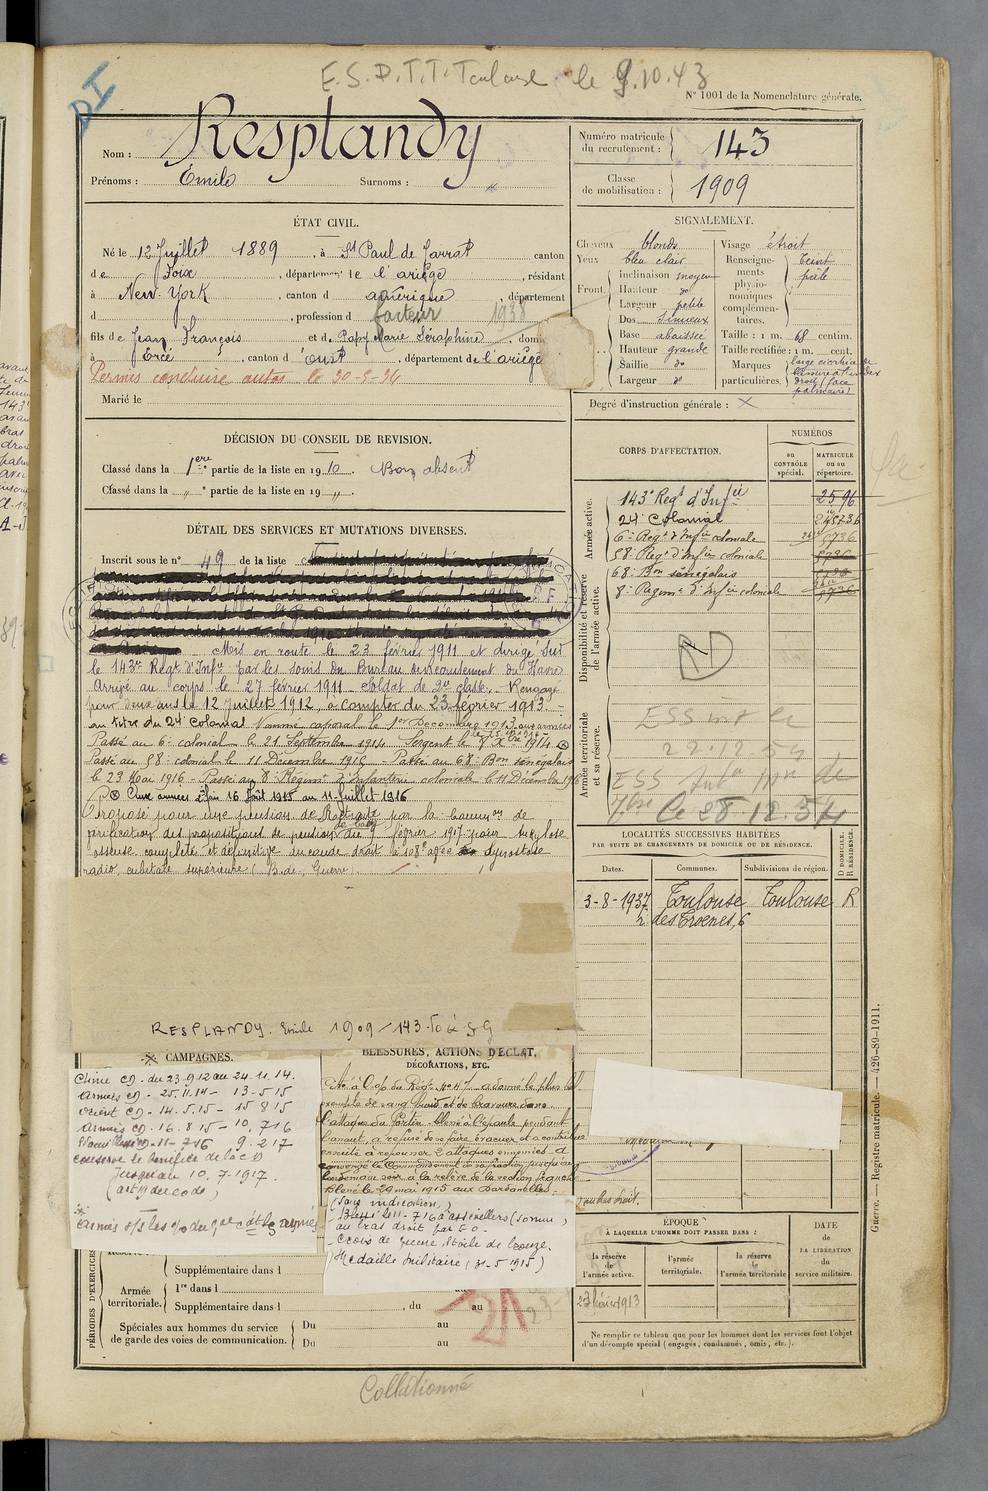 E.S.P.T.T. Toulouse le 9.10.43
N° 1001 de la Nomenclature générale.
Nom : Resplandy
Prénoms : Emile Surnoms : "
Numéro matricule du recrutement : 143
Classe de mobilisation : 1909
ÉTAT CIVIL.
Né le 12 Juillet 1889, à St Paul de Jarrat canton
de Foix, département de l'ariège, résidant
à New-York, canton d amérique, département
d , profession d facteur 1938
fils de Jean François et de Papy Marie Séraphine, domi
à Ercé, canton d'oust, département de l'ariège
Permis conduire autos le 30-5-34
Marié le
SIGNALEMENT.
Cheveux blonds
Yeux bleu clair
Front. Inclinaison moyen
Hauteur do
Largeur petite
Dos sinueux
Base abaissée
Hauteur grande
Saillie do
Largeur do
Visage étroit
Renseignements physionomiques complémentaires. teint pâle
Taille : 1 m. 68 centim.
Taille rectifiée : 1 m. cent.
Marques particulières. large cicatrice
droit (face
palmaire)
Degré d'instruction générale : X
DÉCISION DU CONSEIL DE REVISION.
Classé dans la 1ere partie de la liste en 1910. Bon absent
Classé dans la " e partie de la liste en 19 ".
CORPS D'AFFECTATION.
NUMÉROS
au CONTRÔLE spécial.
MATRICULE ou au répertoire.
Armée active.
143e Regt d'Infie 2596
24e Colonial
6e Regt d'Infie coloniale
58e Regt d'Infie coloniale
68e Bon sénégalais
8e Regimt d'Infie coloniale
Disponibilité et réserve de l'armée active.
Armée territoriale et sa réserve.
ESS int le
22.12.54
le 28.12.54
DÉTAIL DES SERVICES ET MUTATIONS DIVERSES.
Inscrit sous le n° 49 de la liste
Mis en route le 23 février 1911 et dirigé sur
le 143e Regt d'Infie par les soins du Bureau de recrutement du Havre
Arrivé au corps le 27 février 1911. Soldat de 2e classe. Rengagé
pour deux ans le 12 Juillet 1912, à compter du 23 février 1913. -
au titre du 24e Colonial. Nommé caporal le 1er Decembre 1913 aux armées
Passé au 6e colonial le 21 Septembre 1914. Sergent le 7 Xbre 1914
Passé au 58e colonial le 11 Décembre 1915 - Passé au 68e Bon sénégalais
le 23 Mai 1916 - Passé au 8e Regimt d'Infanterie coloniale le 11 Décembre 1916
Aux armées 16 Août 1915 au 11 Juillet 1916
Proposé pour une pension de Retraite par la Common de
vérification des propositions de pension du 9 février 1917 pour ankylose
osseuse complète et définitive du coude droit à 108° avec synostose
radio cubitale supérieure (B. de, Guerre).
RESPLANDY. Emile 1909/143
LOCALITÉS SUCCESSIVES HABITÉES
PAR SUITE DE CHANGEMENTS DE DOMICILE OU DE RÉSIDENCE.
Dates. Communes. Subdivisions de région. D DOMICILE. R RÉSIDENCE.
3-8-1937 Toulouse Toulouse R
r. des Troenes, 6
CAMPAGNES.
Chine CD - du 23.9.12 au 24.11.14.
armées CD - 25.11.14 - 13-5 15
orient CD - 14.5.15 - 15 8 15
armées CD - 16.8.15 - 10, 7 16
CD - 11-7 16 9. 2 17
conserve le bénéfice de la CD
jusqu'au 10.7.1917.
BLESSURES, ACTIONS D'ECLAT,
DÉCORATIONS, ETC.
Cité à l'O. du Régt N° 47 a donné le plus bel
exemple de sang froid et de bravoure dans
l'attaque du fortin. Blessé à l'épaule pendant
l'assaut, a refusé de se faire évacuer et a contribué
ensuite à repousser 2 attaques ennemies - a
conservé le Commandement de sa fraction jusqu'au
lendemain soir à la relève de la section.
Blessé le 29 mai 1915 aux Dardanelles.
(sans indication)
Blessé le 11-7 16 à assevillers (somme)
au bras droit par
Croix de guerre étoile de bronze.
Médaille militaire (31-5 1915)
au bras droit.
PÉRIODES D'EXERCICES
Supplémentaire dans l
Armée territoriale. 1re dans l
Supplémentaire dans l , du au
Spéciales aux hommes du service de garde des voies de communication. Du au
Du au
21
ÉPOQUE
À LAQUELLE L'HOMME DOIT PASSER DANS :
la réserve de l'armée active.
l'armée territoriale.
la réserve de l'armée territoriale
DATE de LA LIBÉRATION du service militaire.
23 février 1913
Ne remplir ce tableau que pour les hommes dont les services font l'objet
d'un décompte spécial (engagés, condamnés, omis, etc.).
Guerre. — Registre matricule. — 426-89-1911.
Collationné